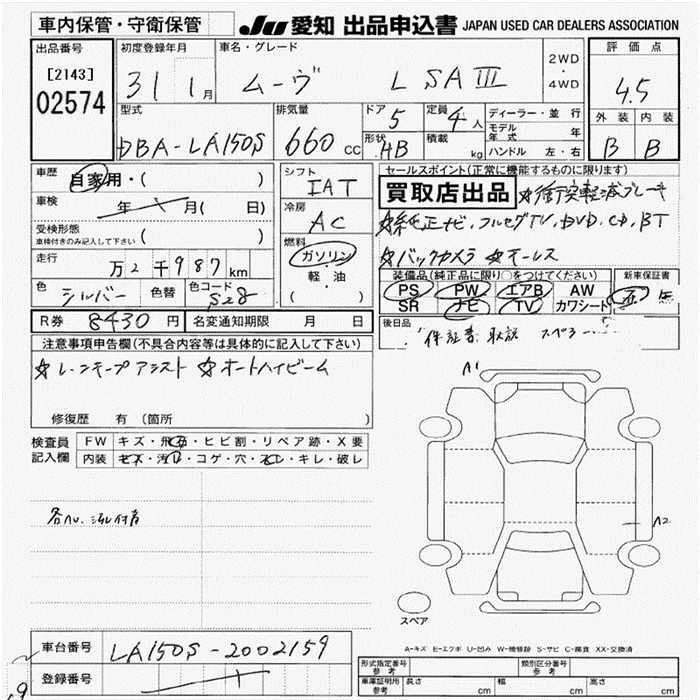 車内保管・守衛保管
JU 愛知 出品申込書 JAPAN USED CAR DEALERS ASSOCIATION
出品番号
[2143]
02574
初度登録年月
31 1月
車名・グレード
ムーヴ L SAⅢ
2WD
・
4WD
評価点
4.5
外装 内装
B B
型式
DBA-LA150S
排気量
660 cc
ドア 5
定員 4人
形状 HB
積載 kg
ディーラー・並行
モデル年式 年
ハンドル 左・右
車歴
自家用・( )
車検
年 月( 日)
受検形態
車検付きのみ記入して下さい ( )
走行
万2千987km
色 シルバー
色替
色コード S28
シフト
IAT
冷房
AC
燃料
ガソリン
軽・油
( )
セールスポイント(正常に機能するものに限ります)
買取店出品 ☆衝突軽減ブレーキ
☆純正ナビ、フルセグTV、DVD、CD、BT
☆バックカメラ ☆キーレス
装備品(純正品に限り○をつけてください)
PS PW エアB AW
SR ナビ TV カワシート
新車保証書
R券 8430円
名変通知期限 月 日
後日品
保証書 取説 スペアキー
注意事項申告欄(不具合内容等は具体的に記入して下さい)
☆レーンキープアシスト ☆オートハイビーム
修復歴 有 (箇所 )
検査員
記入欄
FW キズ・飛石・ヒビ割・リペア跡・X要
内装 キズ・汚れ・コゲ・穴・スレ・キレ・破レ
A1
A2
スペア
A-キズ E-エクボ U-凹み W-補修跡 S-サビ C-腐食 XX-交換済
車台番号 LA150S-2002159
登録番号
形式指定番号
参考
類別区分番号
参考
車庫証明用
参考
長さ cm
幅 cm
高さ cm